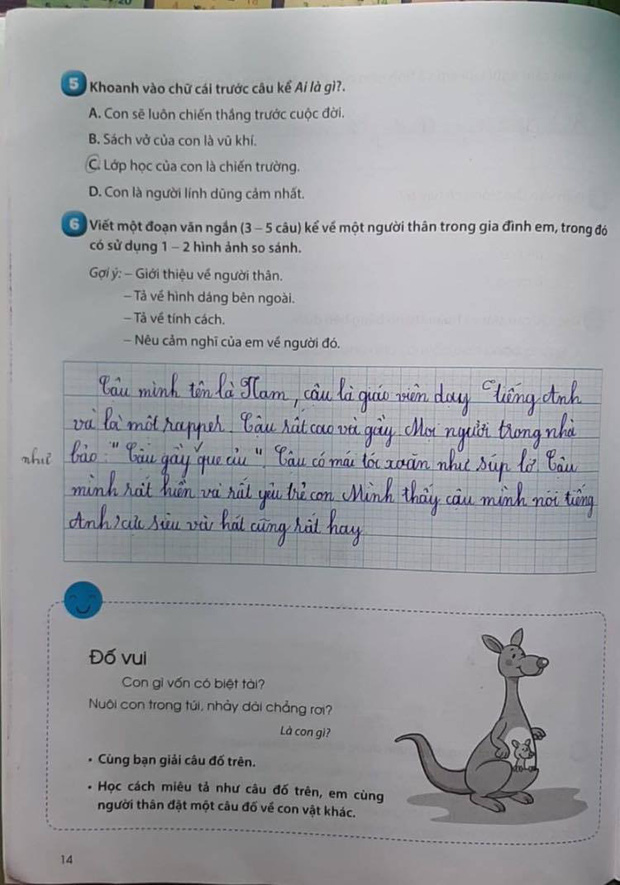 5 Khoanh vào chữ cái trước câu kể Ai là gì?.
A. Con sẽ luôn chiến thắng trước cuộc đời.
B. Sách vở của con là vũ khí.
C. Lớp học của con là chiến trường.
D. Con là người lính dũng cảm nhất.
6 Viết một đoạn văn ngắn (3 – 5 câu) kể về một người thân trong gia đình em, trong đó
có sử dụng 1 – 2 hình ảnh so sánh.
Gợi ý: – Giới thiệu về người thân.
– Tả về hình dáng bên ngoài.
– Tả về tính cách.
– Nêu cảm nghĩ của em về người đó.
Cậu mình tên là Nam, cậu là giáo viên dạy tiếng Anh
và là một rapper. Cậu rất cao và gầy. Mọi người trong nhà
như
bảo: "Cậu gầy que củi". Cậu có mái tóc xoăn như súp lơ. Cậu
mình rất hiền và rất yêu trẻ con. Mình thấy cậu mình nói tiếng
Anh siêu và hát cũng rất hay
Đố vui
Con gì vốn có biệt tài?
Nuôi con trong túi, nhảy dài chẳng rơi?
Là con gì?
• Cùng bạn giải câu đố trên.
• Học cách miêu tả như câu đố trên, em cùng
người thân đặt một câu đố về con vật khác.
14